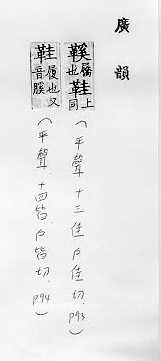 廣韻
鞵屩也鞋上同
(平聲.十三佳.戶佳切.P93)
鞋履也又音膎
(平聲.十四皆.戶皆切.P94)